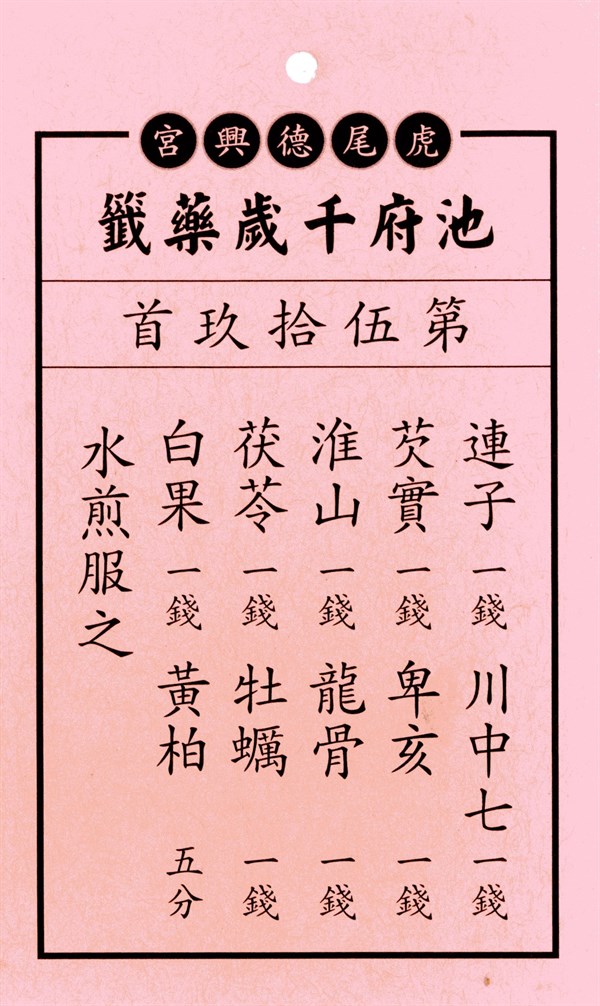 虎尾德興宮
池府千歲藥籤
第伍拾玖首
連子一錢 川中七一錢
芡實一錢 卑亥一錢
淮山一錢 龍骨一錢
茯苓一錢 牡蠣一錢
白果一錢 黃柏五分
水煎服之